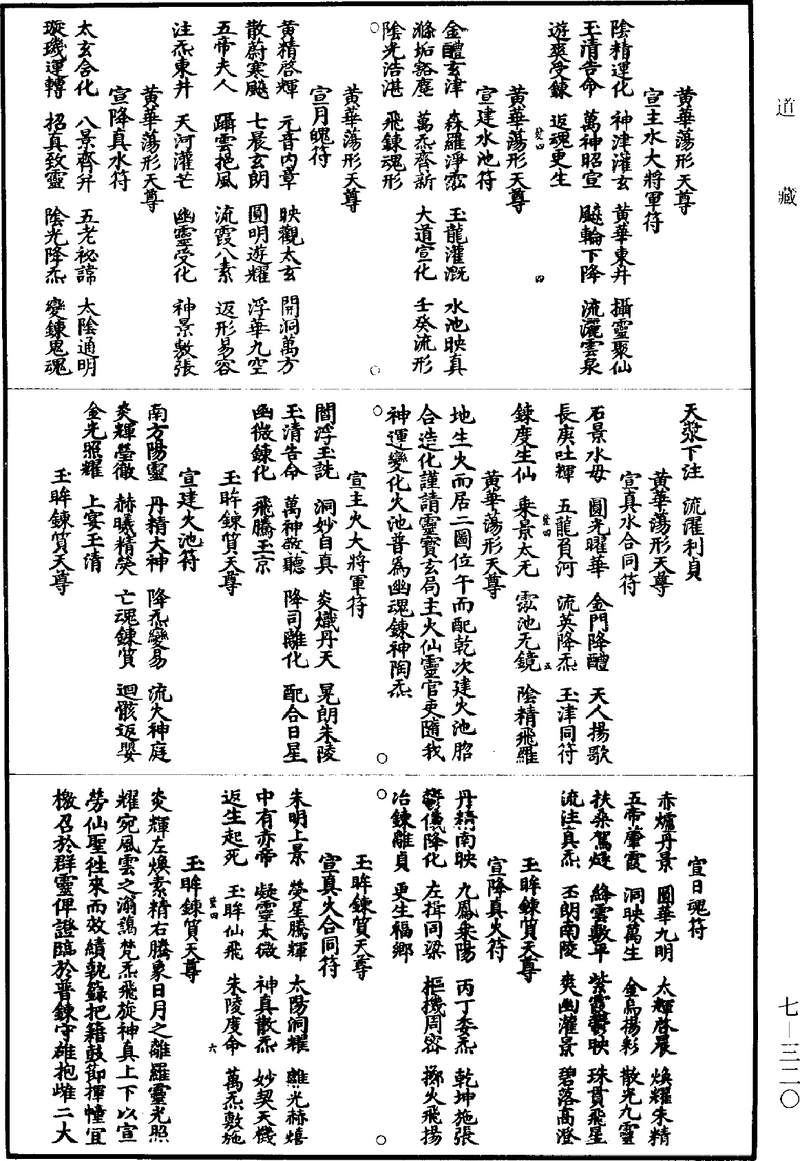 道藏
黃華蕩形天尊
宣主水大將軍符
陰精運化　神津濯玄　黃華東井　攝靈聚仙
玉清告命　萬神昭宣　飈輪下降　流灑雲泉
遊爽受鍊　返魂更生
黃華蕩形天尊
宣建水池符
金醴玄津　森羅淨泓　玉龍灌溉　水池映真
滌垢豁塵　萬炁齊新　大道宣化　壬癸流形
陰光浩湛　飛鍊魂形
黃華蕩形天尊
宣月魄符
黃精啓輝　元音內章　映觀太玄　開洞萬方
散蔚寒飈　七晨玄朗　圓明遊耀　浮華九空
五帝夫人　躡雲挹風　流霞八素　返形易容
注炁東井　天河濯芒　幽靈受化　神景敷張
黃華蕩形天尊
宣降真水符
太玄含化　八景齊升　五老祕諱　太陰通明
璇璣運轉　招真致靈　陰光降炁　變鍊鬼魂
天漿下注　流濯利貞
黃華蕩形天尊
宣真水合同符
石景水母　圓光曜華　金門降醴　天人揚歌
長庚吐輝　五龍負河　流英降炁　玉津同符
鍊度生仙　乘景太无　靈池无鏡　陰精飛羅
黃華蕩形天尊
地生火而居二圖位午而配乾次建火池胳
合造化謹請靈寶玄局主火仙靈官吏隨我
神運變化火池普為幽魂鍊神陶炁
宣主火大將軍符
閻浮玉詵　洞妙自真　炎熾丹天　晃朗朱陵
玉清告命　萬神敬聽　降司離化　配合日星
幽微鍊化　飛騰玉京
玉眸鍊質天尊
宣建火池符
南方陽靈　丹精大神　降炁變易　流火神庭
炎輝瑩徹　赫曦精熒　亡魂鍊質　迴骸返嬰
金光照耀　上宴玉清
玉眸鍊質天尊
宣日魂符
赤爐丹景　圓華九明　太輝啓晨　煥耀朱精
五帝肇霞　洞映萬生　金烏揚彩　散光九靈
扶桑駕𩣡　絳雲敷平　紫霞鬱映　珠貫飛星
流注真炁　丕朗南陵　爽幽濯景　碧落高澄
玉眸鍊質天尊
宣降真火符
丹精南映　九鳳乘陽　丙丁委炁　乾坤施張
鬱儀降化　左揖同梁　樞機周密　擲火飛揚
冶鍊離貞　更生福鄉
玉眸鍊質天尊
宣真火合同符
朱明上景　熒星騰輝　太陽洞耀　離光赫熺
中有赤帝　凝靈太微　神真散炁　妙契天機
返生起死　玉眸仙飛　朱陵度命　萬炁敷施
玉眸鍊質天尊
炎輝左煥素精右騰象日月之離羅靈光照
耀宛風雲之滃藹梵炁飛旋神真上下以宣
勞仙聖往來而效績執籙把籍鼓節揮幢宜
檄召於群靈俾證臨於普鍊守雄抱雌二大
七—三二〇